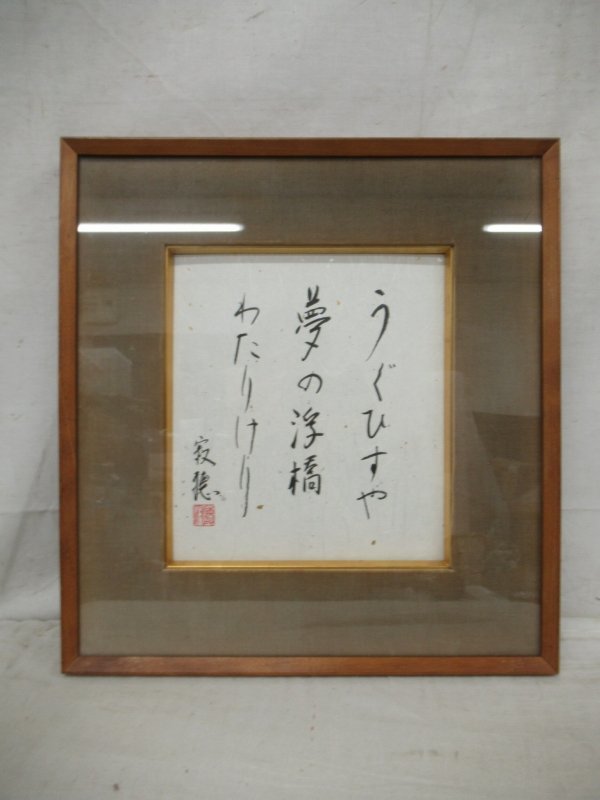 うぐひすや
夢の浮橋
わたりけり
寂聴